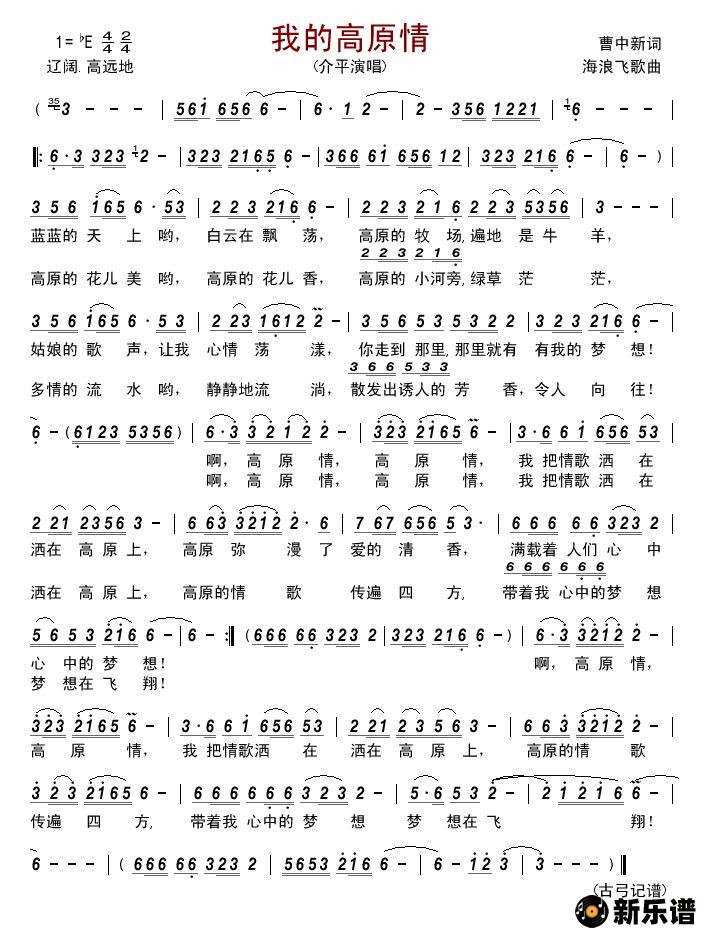 我的高原情
1=♭E 4/4 2/4
曹中新词
辽阔.高远地
(介平演唱)
海浪飞歌曲
( 35 3 - - - | 561 656 6 - | 6·1 2 - | 2 - 356 1221 | 1 6 - - - |
|: 6·3 323 1 2 - | 323 2165 6 - | 366 61 656 12 | 323 216 6 - | 6 - ) |
3 5 6 165 6·53 | 2 2 3 216 6 - | 2 2 3 2 1 6 2 2 3 5356 | 3 - - - |
蓝蓝的 天 上 哟, 白云在 飘 荡, 高原的 牧 场,遍地 是 牛 羊,
2 2 3 2 1 6
高原的 花儿 美 哟, 高原的 花儿 香, 高原的 小河旁,绿草 茫 茫,
3 5 6 165 6·5 3 | 2 2 3 1612 2 - | 3 5 6 5 3 5 3 2 2 | 3 2 3 216 6 - |
姑娘的 歌 声,让我 心情 荡 漾, 你走到 那里,那里就有 有我的 梦 想!
3 6 6 5 3 3
多情的 流 水 哟, 静静地流 淌, 散发出诱人的 芳 香,令人 向 往!
6 - (6123 5356) | 6·3 3 2 1 2 2 - | 323 2165 6 - | 3·6 6 1 656 53 |
啊, 高 原 情, 高 原 情, 我 把情歌 洒 在
啊, 高 原 情, 高 原 情, 我 把情歌 洒 在
2 21 2356 3 - | 6 63 3212 2·6 | 7 67 656 5 3· | 6 6 6 6 6 323 2 |
洒在 高 原 上, 高原 弥 漫 了 爱的 清 香, 满载着 人们 心 中
6 6 6 6 6 6
洒在 高 原 上, 高原的 情 歌 传遍 四 方, 带着我 心中的 梦 想
5 6 5 3 216 6 - | 6 - :| (666 66 323 2 | 323 216 6 - ) | 6·3 3212 2 - |
心 中的 梦 想! 啊, 高 原 情,
梦 想在 飞 翔!
323 2165 6 - | 3·6 6 1 656 53 | 2 21 2 3 56 3 - | 6 6 3 3212 2 - |
高 原 情, 我 把情歌洒 在 洒在 高 原 上, 高原的 情 歌
3 2 3 2165 6 - | 6 6 6 6 6 6 3 2 3 2 - | 5·6 5 3 2 - | 2 1 2 1 6 6 - |
传遍 四 方, 带着我 心中的 梦 想 梦 想在 飞 翔!
6 - - - | (666 66 323 2 | 5653 216 6 - | 6 - 12 3 | 3 - - - ) ||
(古弓记谱)
新乐谱